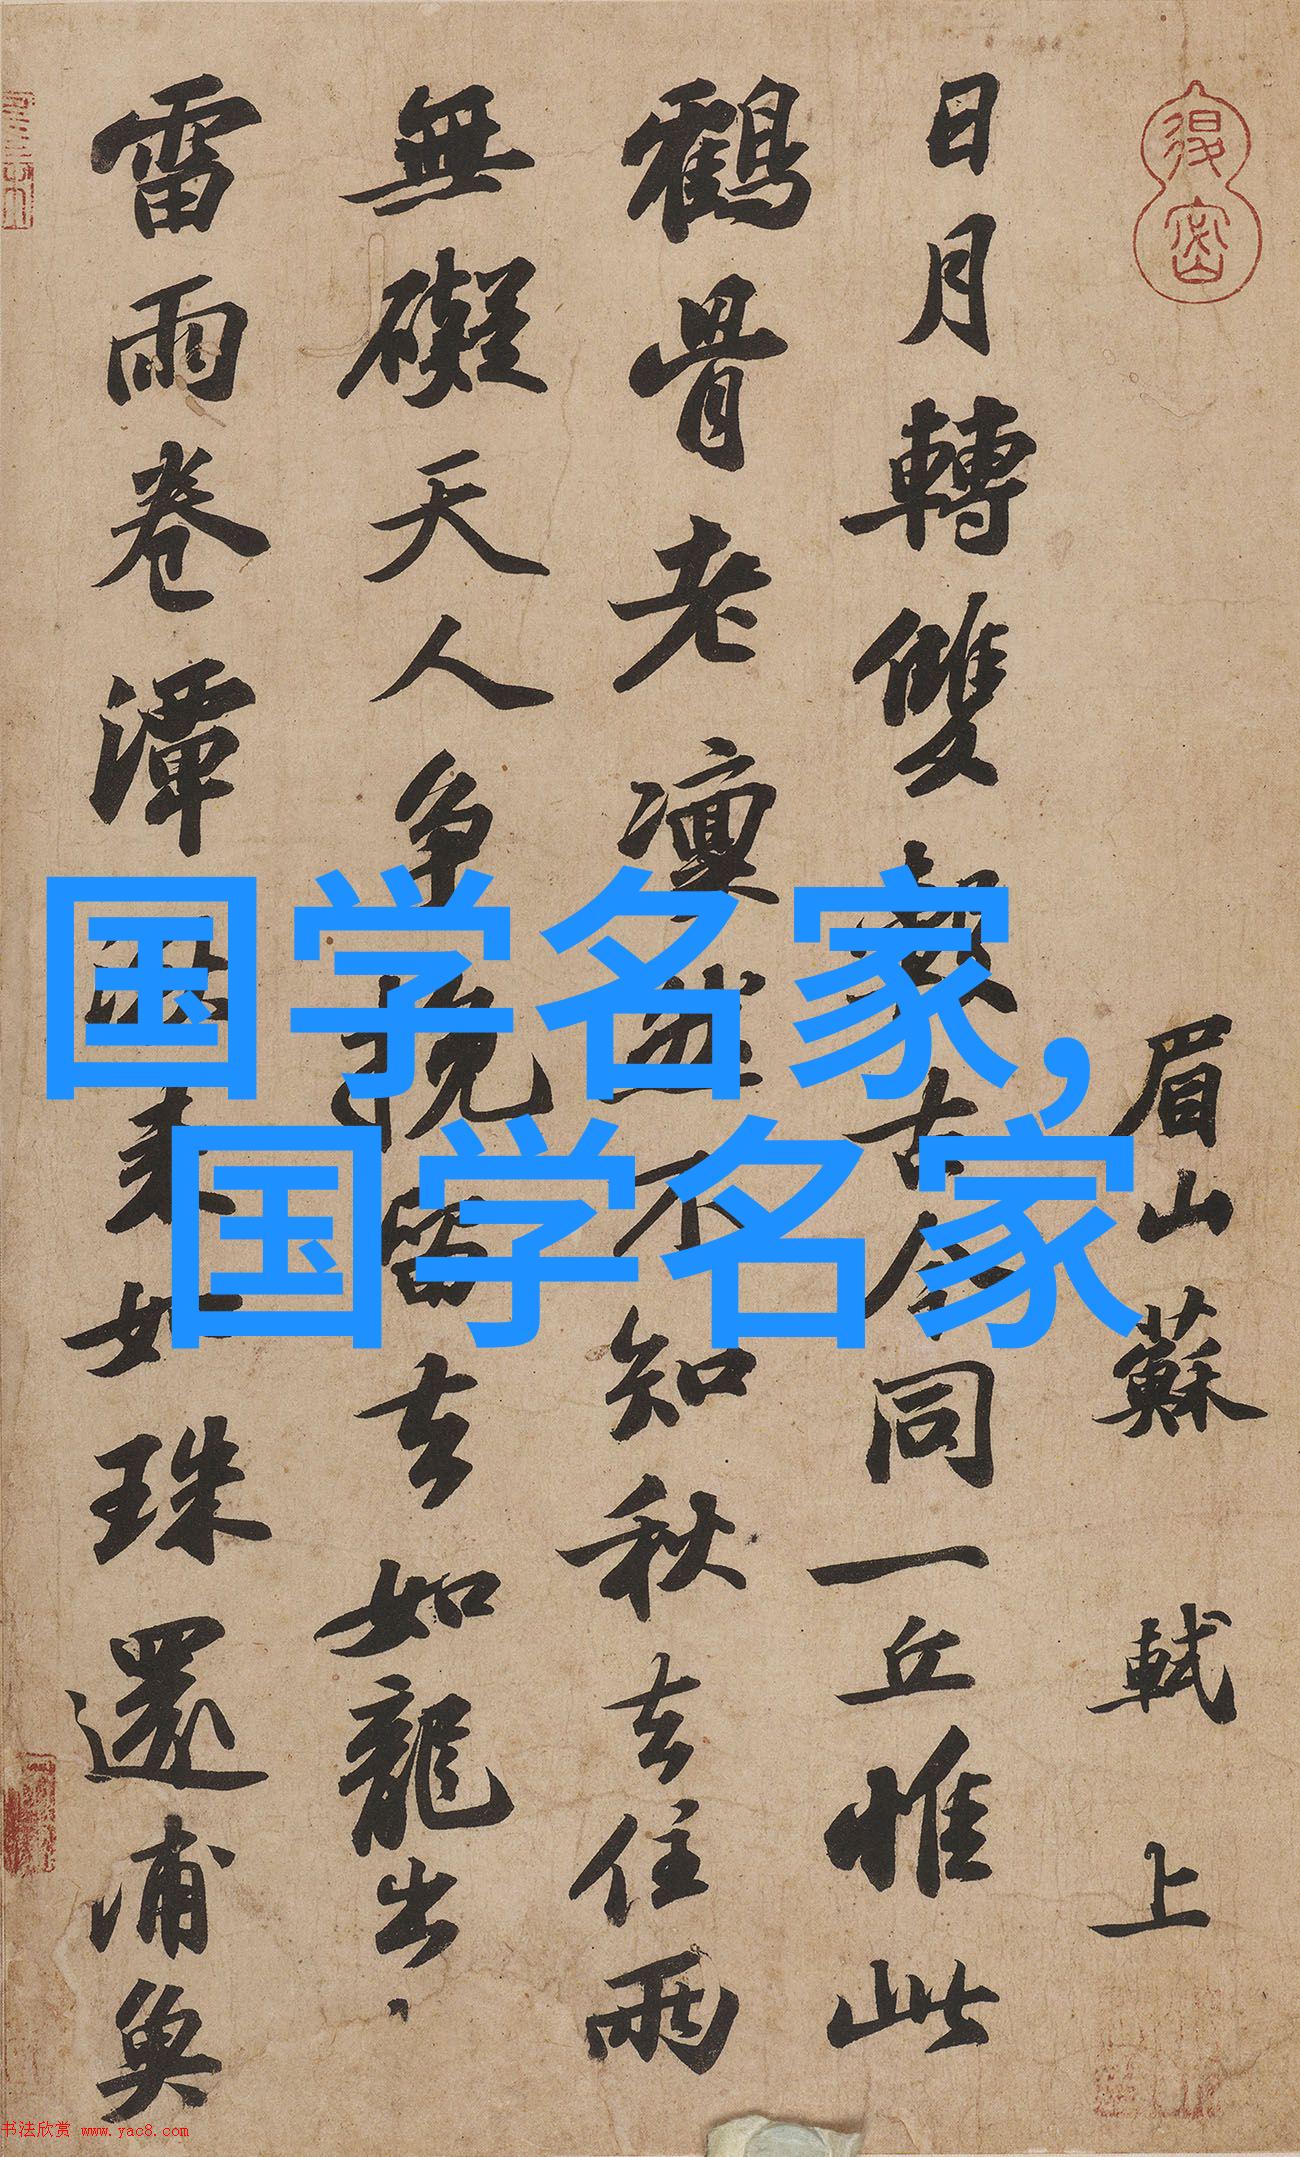 眉山蘇 軾 上
日月轉雙轂古今同一丘惟此
鶴骨老凜然不知秋去住兩
無礙天人争挽留去如龍出
雷雨卷潭湫来如珠還浦魚
国学名家，
国学名家
书法欣赏 www.yac8.com